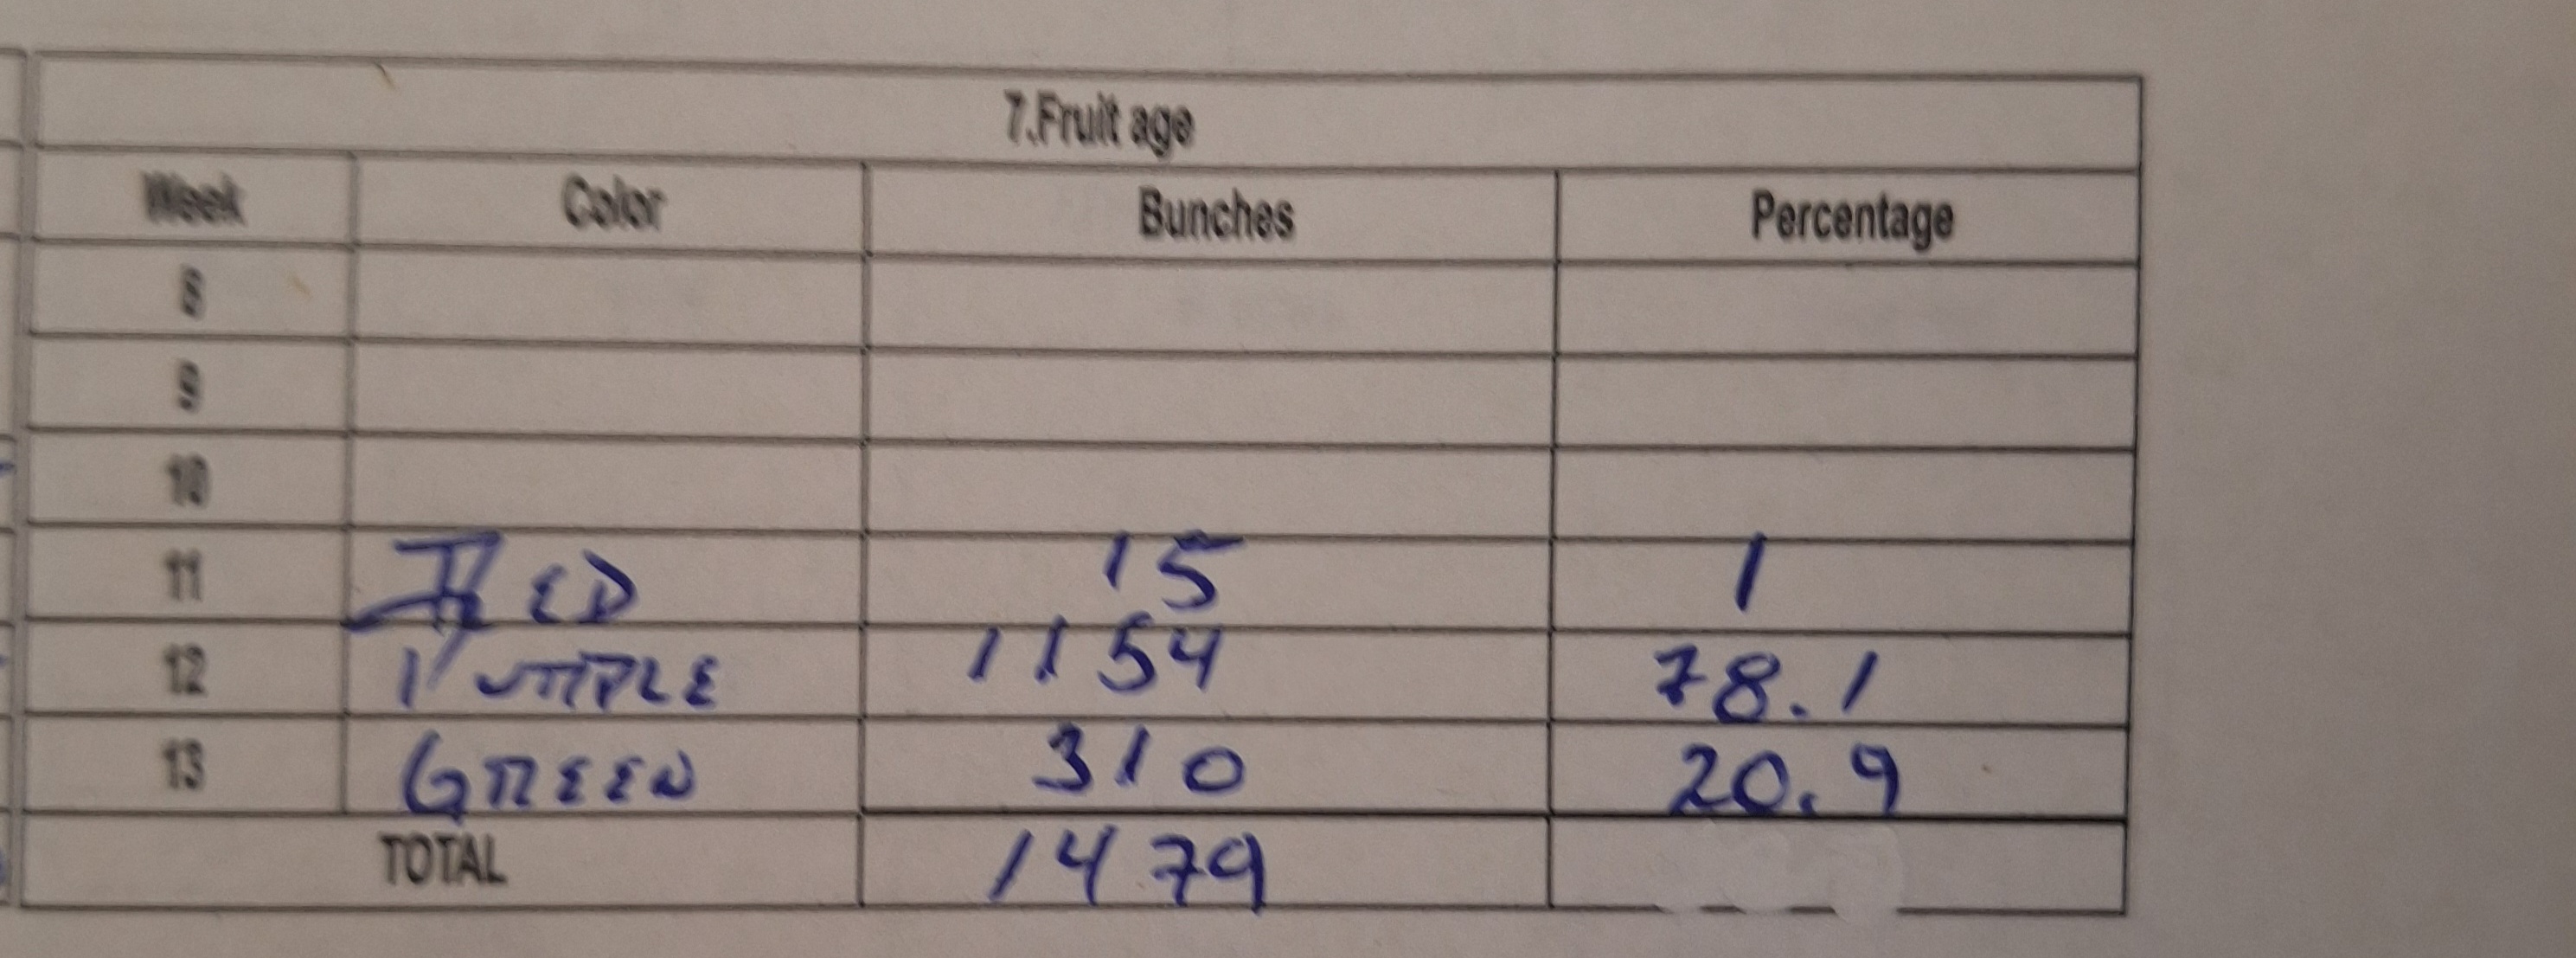 7.Fruit age
Week Color Bunches Percentage
8
9
10
11 RED 15 1
12 PURPLE 1154 78.1
13 GREEN 310 20.9
TOTAL 1479